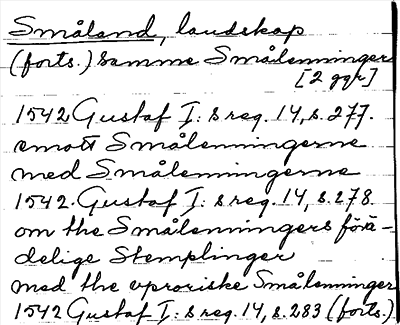 Småland, landskap
(forts.) samme Smålenninger
[2 ggr]
1542 Gustaf I: s reg. 14, s. 277.
emott Smålenningerne
med Smålenningerne
1542. Gustaf I: s reg. 14, s. 278
om the Smålenningers förä-
delige Stemplinger
med the vproriske Smålenninger
1542 Gustaf I: s reg. 14, s. 283 (forts.)